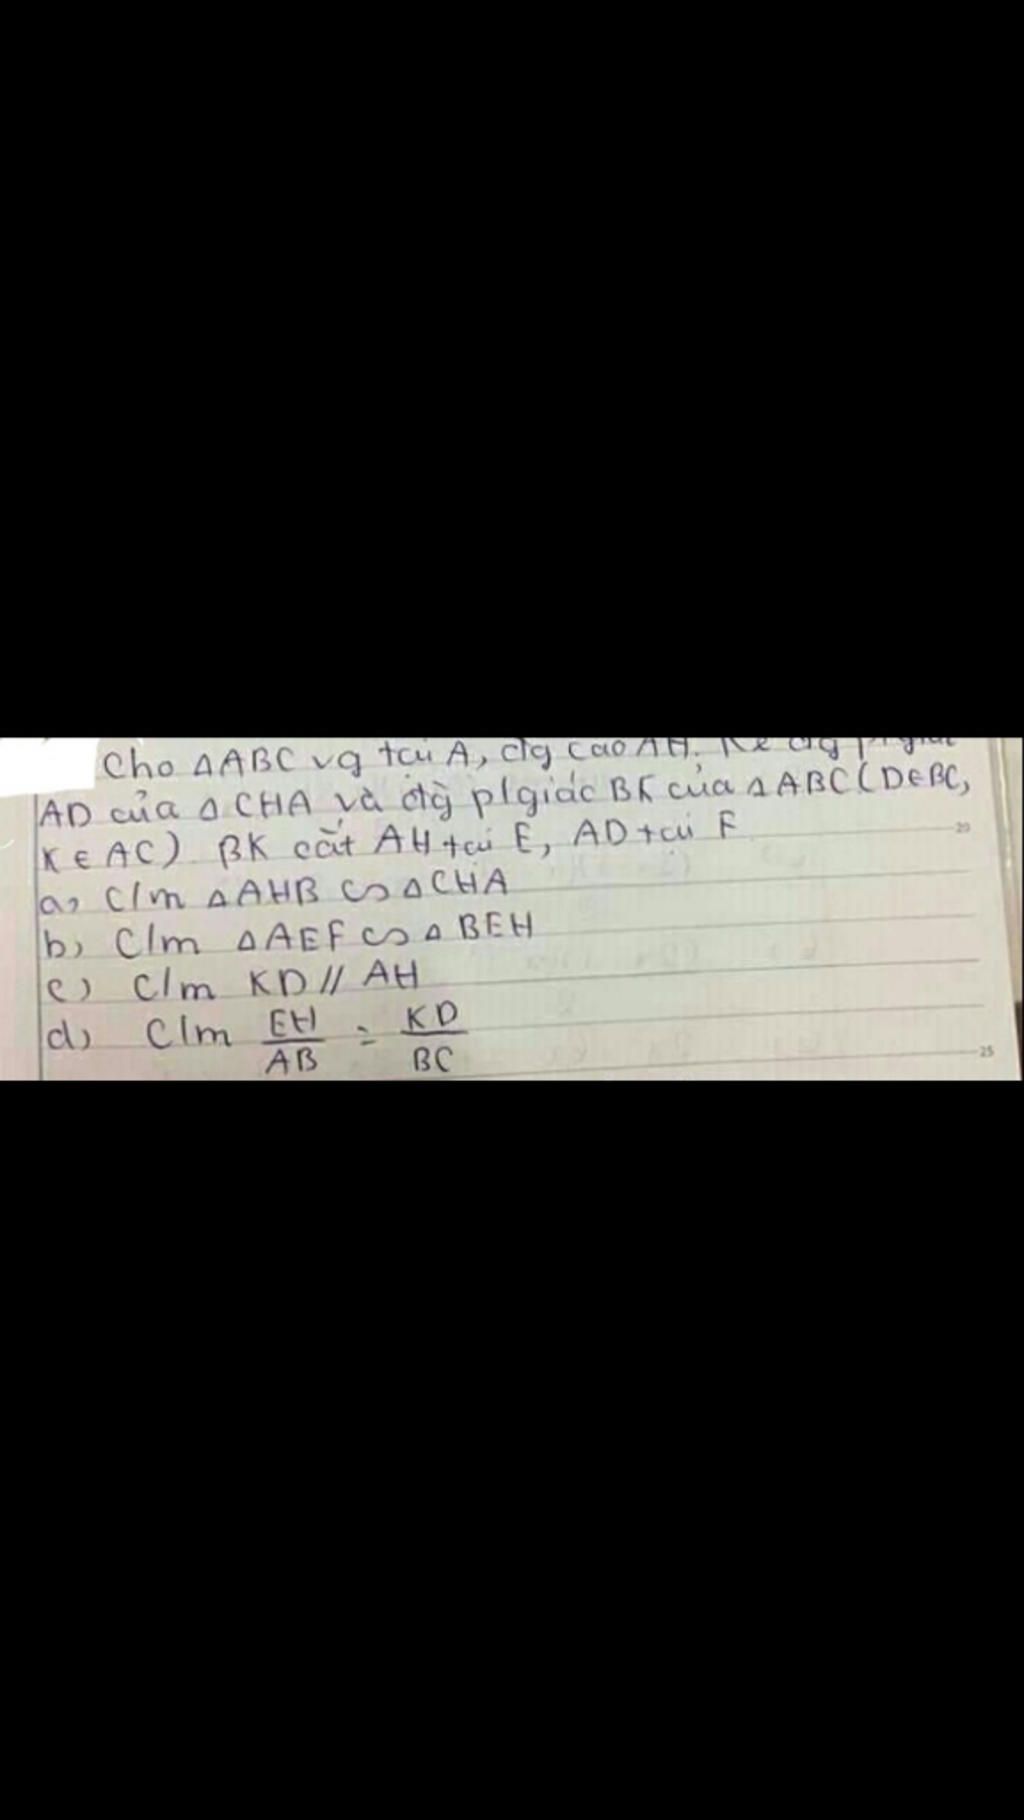 Cho △ABC vg tại A, đg cao AH. Kẻ đg p/giác
AD của △CHA và đg p/giác BK của △ABC (D∈BC,
K∈AC) BK cắt AH tại E, AD tại F
20
a, C/m △AHB ∽ △CHA
b, C/m △AEF ∽ △BEH
c) C/m KD // AH
d) C/m EH/AB = KD/BC
25